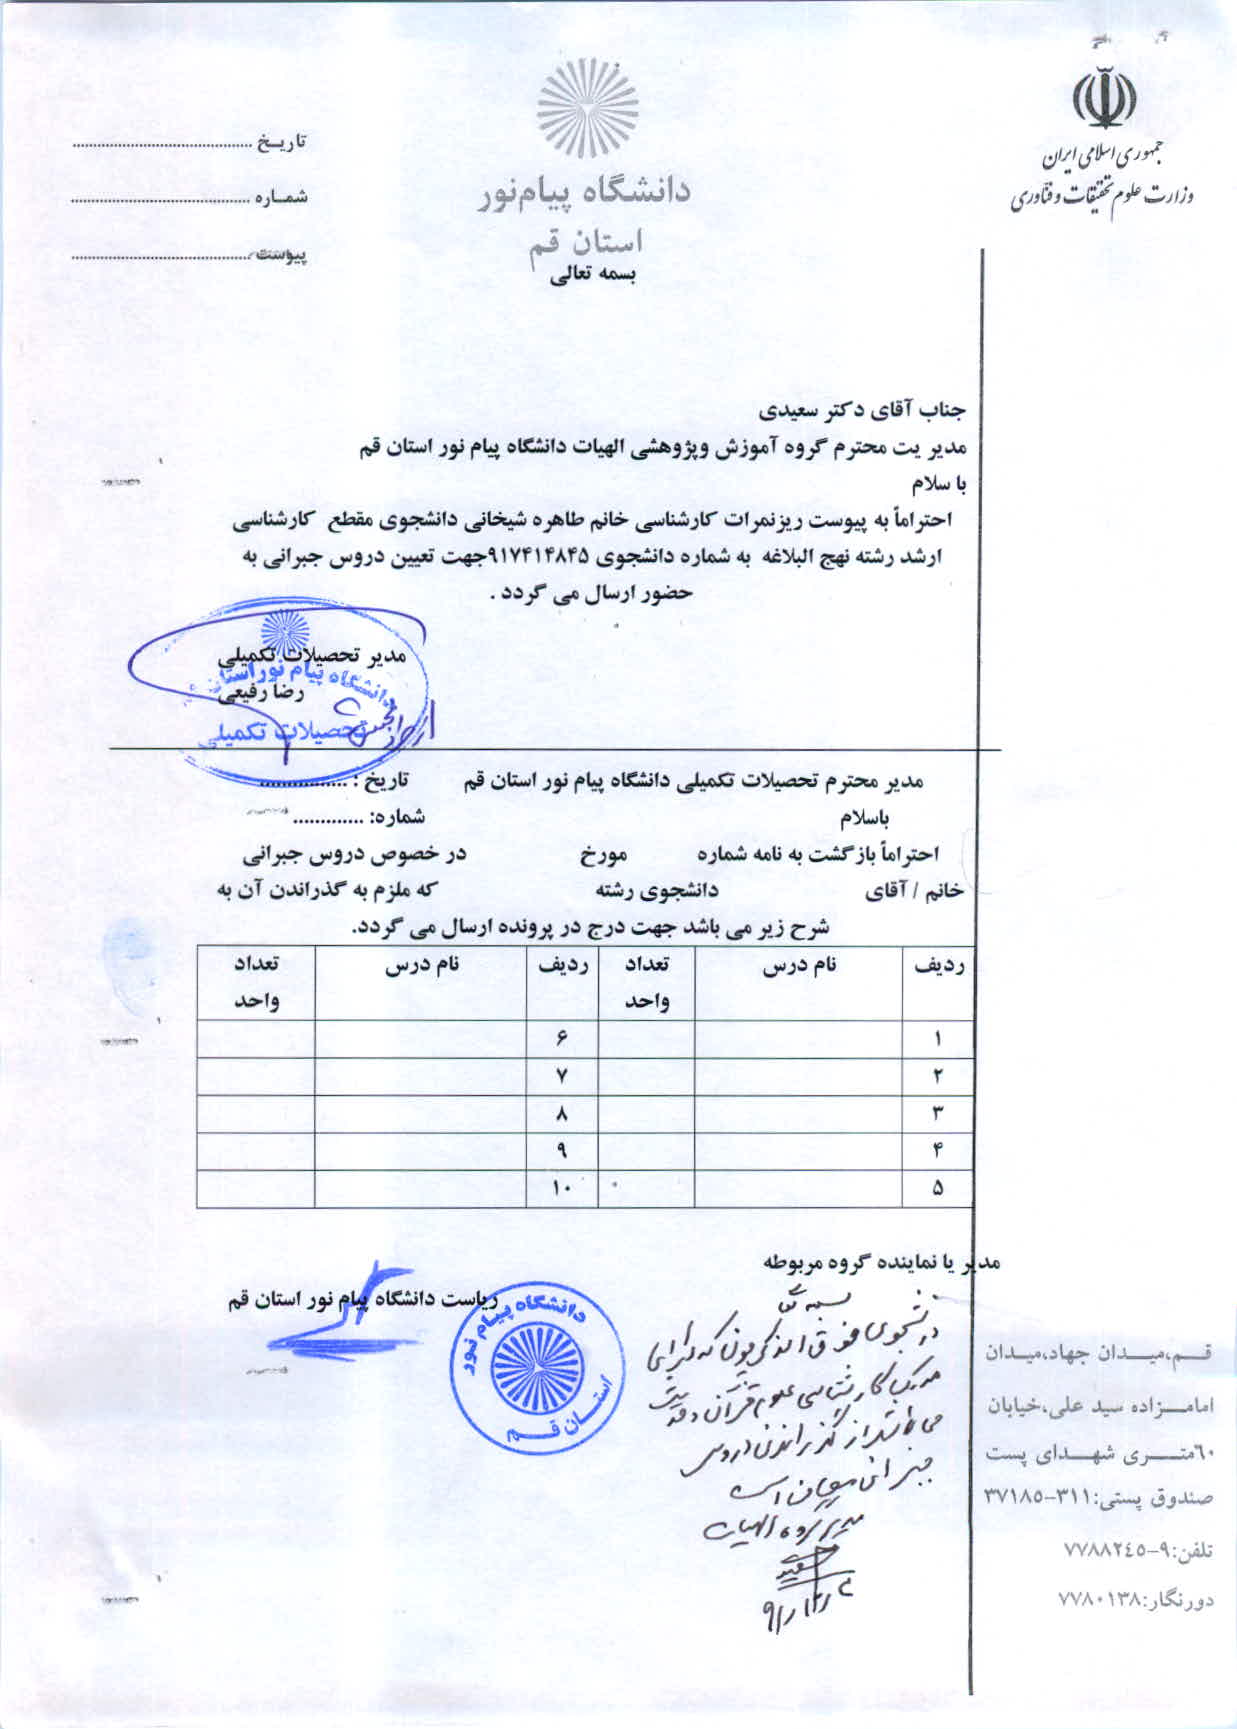 جمهوری اسلامی ایران
وزارت علوم تحقیقات و فنّاوری
دانشگاه پیام‌نور
استان قم
بسمه تعالی
تاریخ ............
شماره ............
پیوست ............
جناب آقای دکتر سعیدی
مدیر یت محترم گروه آموزش وپژوهشی الهیات دانشگاه پیام نور استان قم
با سلام
احتراماً به پیوست ریزنمرات کارشناسی خانم طاهره شیخانی دانشجوی مقطع کارشناسی
ارشد رشته نهج البلاغه به شماره دانشجوی ۹۱۷۴۱۴۸۴۵جهت تعیین دروس جبرانی به
حضور ارسال می گردد .
مدیر تحصیلات تکمیلی
رضا رفیعی
دانشگاه پیام نور استان قم
تحصیلات تکمیلی
مدیر محترم تحصیلات تکمیلی دانشگاه پیام نور استان قم تاریخ : ................
باسلام شماره: .............
احتراماً بازگشت به نامه شماره مورخ در خصوص دروس جبرانی
خانم / آقای دانشجوی رشته که ملزم به گذراندن آن به
شرح زیر می باشد جهت درج در پرونده ارسال می گردد.
ردیف نام درس تعداد واحد ردیف نام درس تعداد واحد
۱ ۶
۲ ۷
۳ ۸
۴ ۹
۵ ۱۰
مدیر یا نماینده گروه مربوطه
ریاست دانشگاه پیام نور استان قم
دانشگاه پیام نور
استان قم
بسمه تعالی
دانشجوی فوق الذکر چون که دارای
مدرک کارشناسی علوم قرآن و حدیث
می باشد از گذراندن دروس
جبرانی معاف است
مدیر گروه الهیات
سعیدی
۹۱/۱۲/۲
قـم،میـدان جهاد،میدان
امامـزاده سید علی،خیابان
٦٠متـری شهـدای پست
صندوق پستی:۳۱۱-۳۷۱۸۵
تلفن:۹-۷۷۸۸۲٤٥
دورنگار:۷۷۸۰۱۳۸